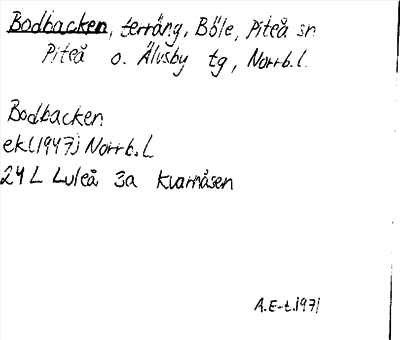 Bodbacken, terräng, Böle, Piteå sn
Piteå o. Älvsby tg, Norrb.l.
Bodbacken
ek.(1947) Norrb.L
24 L Luleå 3a Kvarnåsen
A.E-t.1971